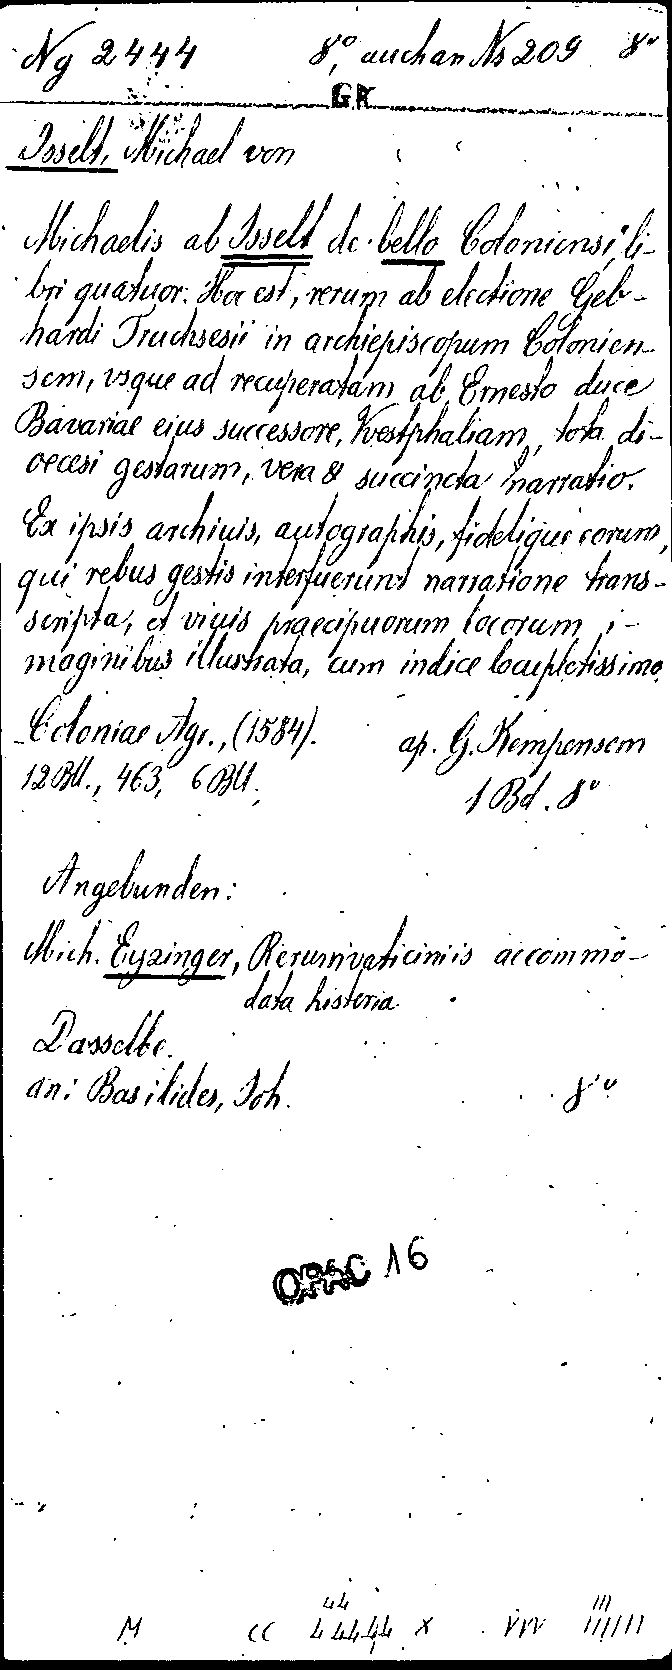 Ng 2444 8°, auch an Ns 209 8°
GK
Isselt, Michael von
Michaelis ab Isselt de bello Coloniensi li-
bri quatuor. Hoc est, rerum ab electione Geb-
hardi Truchsesii in archiepiscopum Colonien-
sem, vsque ad recuperatam ab Ernesto duce
Bavariae eius successore, Westphaliam, tota di-
oecesi gestarum, vera & succincta narratio.
Ex ipsis archiuis, autographis, fidelique eorum,
qui rebus gestis interfuerunt narratione trans-
scripta, et viuis praecipuorum locorum i-
maginibus illustrata, cum indice locupletissimo
Coloniae Agr., (1584). ap. G. Kempensem
12 Bll., 463, 6 Bll. 1 Bd. 8°
Angebunden:
Mich. Eyzinger, Rerum vaticiniis accommo-
data historia
Dasselbe.
an: Basilides, Joh. 8°
OPAC 16
44
M CC 4444 X VVV